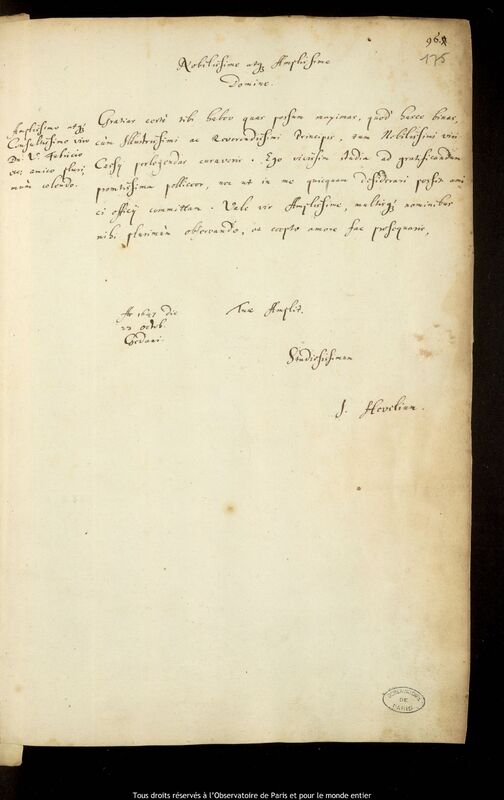 96
175
Nobilissime atq; Amplissime
Domine.
Amplissimo atq;
Consultissimo viro
Dn. V. Fabricio
etc. amico pluri
mum colendo.
Gratias certè tibi habeo quas possum maximas, quod hasce binas,
cùm Illustrissimi ac Reverendissimi Principis, tum Nobilissimi viri
perlegendas curaveris. Ego vicissim studia ad gratificandum
promtissima polliceor, nec ut in me quicquam desiderari possit ami
ci officij committam. Vale vir Amplissime, multisq; nominibus
mihi plurimùm observande, ac cœpto amore fac prosequaris,
Aº 1647 die
22 octob.
Gedani.
Tuæ Amplit.
Studiosissimum
J. Hevelium.
OBSERVATOIRE
DE
PARIS
Tous droits réservés à l'Observatoire de Paris et pour le monde entier